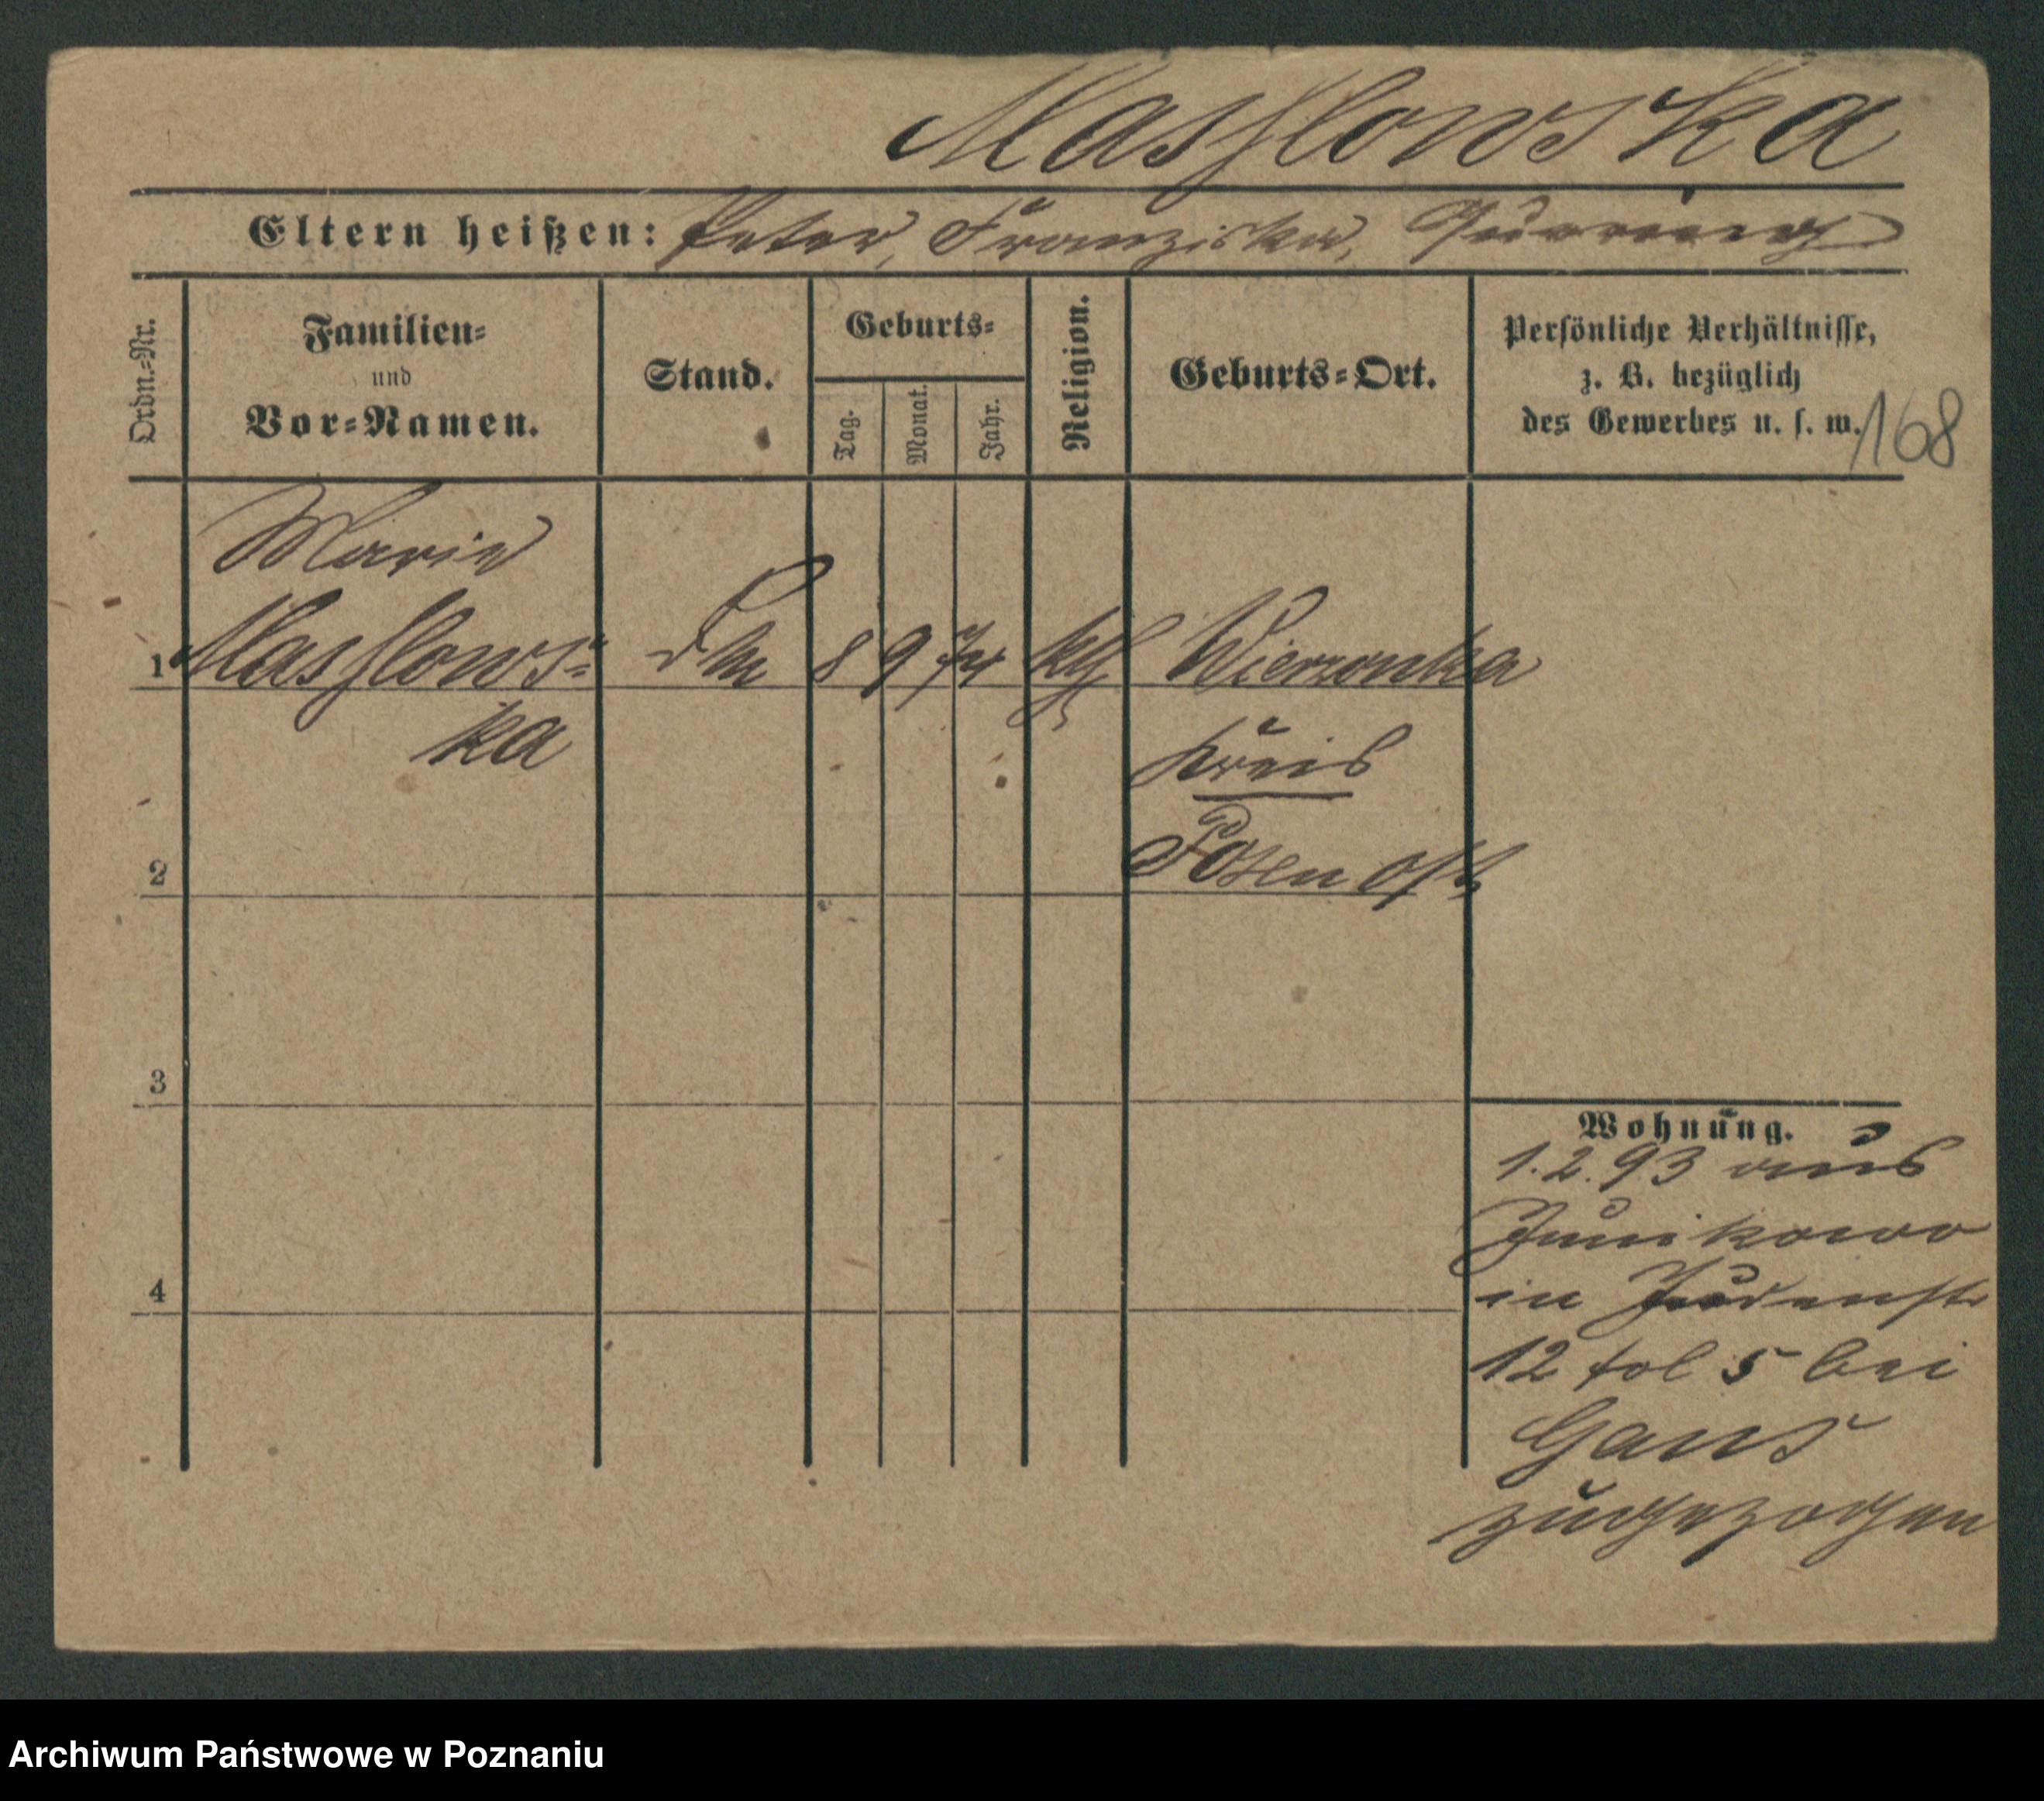 Masslowska
Eltern heißen: Peter, Franziska,
Ordn.-Nr.
Familien-
und
Vor-Namen.
Stand.
Geburts-
Tag.
Monat.
Jahr.
Religion.
Geburts-Ort.
Persönliche Verhältnisse,
z. B. bezüglich
des Gewerbes u. s. w.
168
Marie
1 Masslows- 8 9 74 kth Wierzonka
ka
Kreis
Posen Ost
2
3
4
Wohnung.
1.2.93 aus
Junikowo
in Judenstr
12 fol 5 bei
Gans
zugezogen
Archiwum Państwowe w Poznaniu